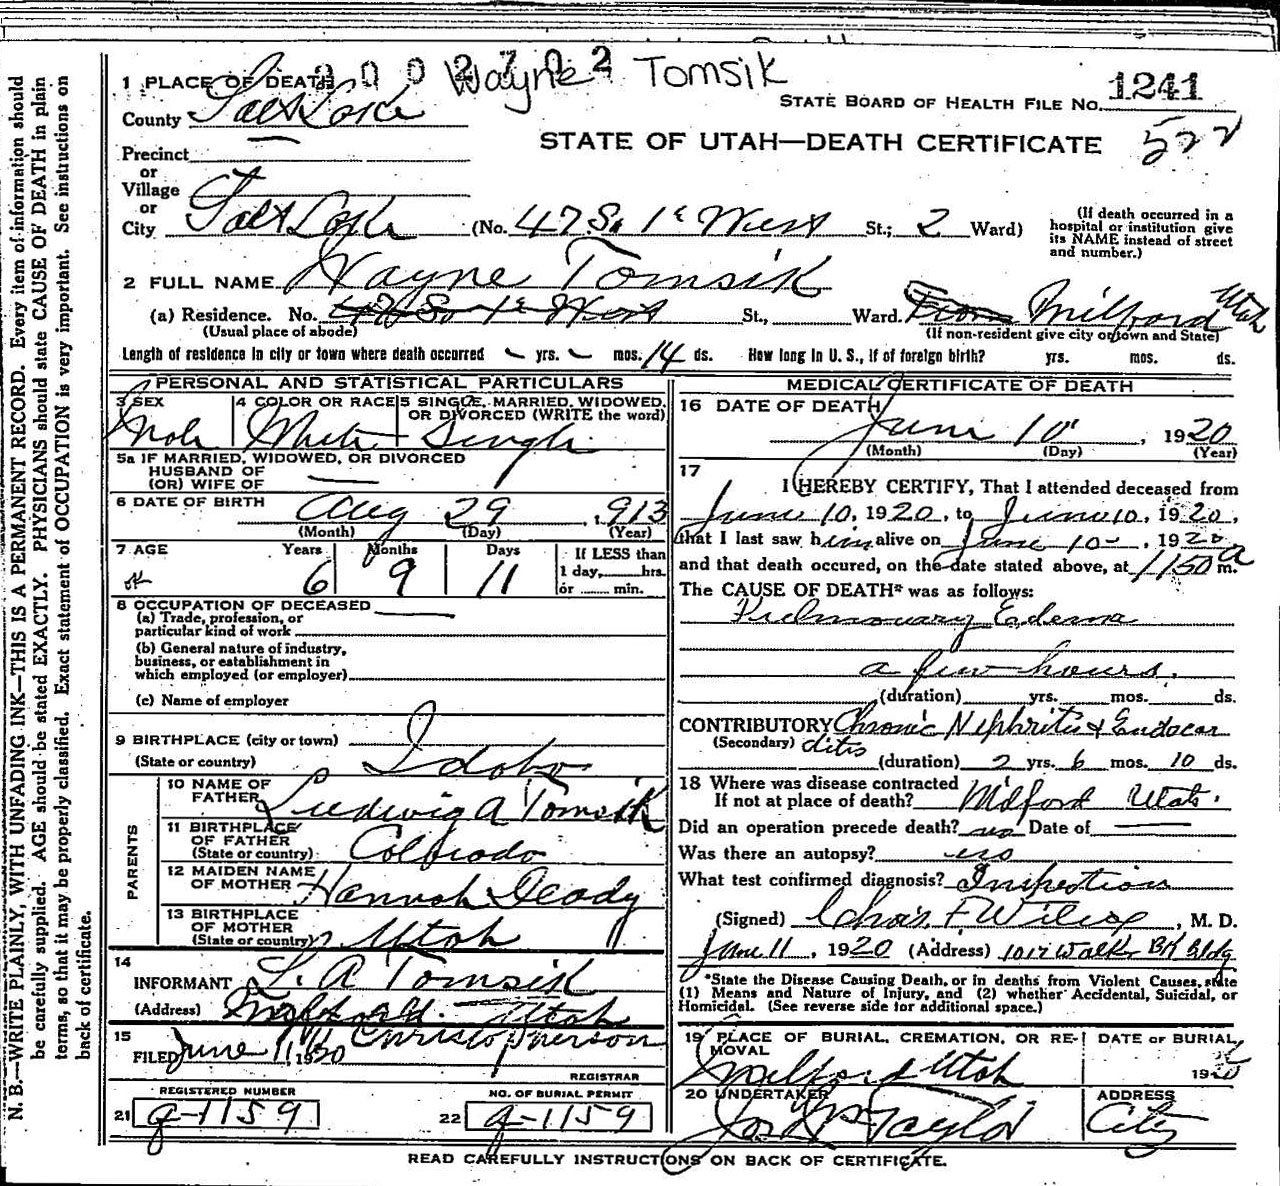 N. B.—WRITE PLAINLY, WITH UNFADING INK—THIS IS A PERMANENT RECORD. Every item of information should
be carefully supplied. AGE should be stated EXACTLY. PHYSICIANS should state CAUSE OF DEATH in plain
terms, so that it may be properly classified. Exact statement of OCCUPATION is very important. See instructions on
back of certificate.
2002702 Wayne Tomsik
1 PLACE OF DEATH
STATE BOARD OF HEALTH FILE NO. 1241
County Salt Lake
STATE OF UTAH—DEATH CERTIFICATE 522
Precinct
or
Village
or
City Salt Lake (No. 47 So. 1st West St.; 2 Ward)
(If death occurred in a
hospital or institution give
its NAME instead of street
and number.)
2 FULL NAME Wayne Tomsik
(a) Residence. No. 47 So 1st West St., Ward. From Milford Utah
(Usual place of abode) (If non-resident give city or town and State)
Length of residence in city or town where death occurred - yrs. - mos. 14 ds. How long in U. S., if of foreign birth? yrs. mos. ds.
PERSONAL AND STATISTICAL PARTICULARS
3 SEX 4 COLOR OR RACE 5 SINGLE, MARRIED, WIDOWED,
OR DIVORCED (WRITE the word)
Male White Single
5a IF MARRIED, WIDOWED, OR DIVORCED
HUSBAND OF
(OR) WIFE OF
6 DATE OF BIRTH Aug 29, 1913
(Month) (Day) (Year)
7 AGE Years Months Days If LESS than
1 day, hrs.
or min.
ok 6 9 11
8 OCCUPATION OF DECEASED
(a) Trade, profession, or
particular kind of work
(b) General nature of industry,
business, or establishment in
which employed (or employer)
(c) Name of employer
9 BIRTHPLACE (city or town)
(State or country) Idaho
PARENTS
10 NAME OF
FATHER Ludwig A Tomsik
11 BIRTHPLACE
OF FATHER
(State or country) Colorado
12 MAIDEN NAME
OF MOTHER Hannah Deady
13 BIRTHPLACE
OF MOTHER
(State or country) Utah
14
INFORMANT L. A Tomsik
(Address) Milford. Utah
15
FILED June 11, 1920 Christopherson
REGISTRAR
REGISTERED NUMBER NO. OF BURIAL PERMIT
21 g-1159 22 g-1159
MEDICAL CERTIFICATE OF DEATH
16 DATE OF DEATH
June 10, 1920
(Month) (Day) (Year)
17
I HEREBY CERTIFY, That I attended deceased from
June 10, 1920, to June 10, 1920,
that I last saw him alive on June 10-, 1920
and that death occured, on the date stated above, at 1150 a m.
The CAUSE OF DEATH* was as follows:
Pulmonary Edema
a few hours.
(duration) yrs. mos. ds.
CONTRIBUTORY Chronic Nephritis & Endocar
(Secondary) ditis
(duration) 2 yrs. 6 mos. 10 ds.
18 Where was disease contracted
If not at place of death? Milford Utah.
Did an operation precede death? no Date of
Was there an autopsy? no
What test confirmed diagnosis? Inspection
(Signed) Chas. F. Wilcox, M. D.
June 11, 1920 (Address) 1017 Walker Bk Bldg
*State the Disease Causing Death, or in deaths from Violent Causes, state
(1) Means and Nature of Injury, and (2) whether Accidental, Suicidal, or
Homicidal. (See reverse side for additional space.)
19 PLACE OF BURIAL, CREMATION, OR RE-
MOVAL
DATE OF BURIAL
Milford Utah 1920
20 UNDERTAKER ADDRESS
Taylor City
READ CAREFULLY INSTRUCTIONS ON BACK OF CERTIFICATE.